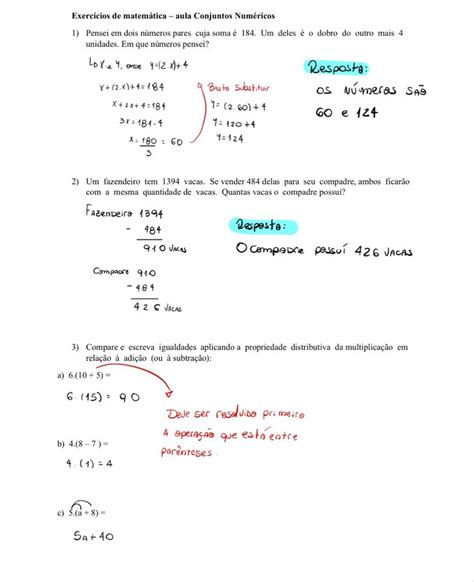 Exercícios de matemática – aula Conjuntos Numéricos
1) Pensei em dois números pares cuja soma é 184. Um deles é o dobro do outro mais 4
unidades. Em que números pensei?
↳ x e y, onde y=(2.x)+4
x+(2.x)+4=184
x+2x+4=184
3x=184-4
x=180=60
3
Basta substituir
y=(2.60)+4
y=120+4
y=124
Resposta:
os números são
60 e 124
2) Um fazendeiro tem 1394 vacas. Se vender 484 delas para seu compadre, ambos ficarão
com a mesma quantidade de vacas. Quantas vacas o compadre possui?
Fazendeiro 1394
- 484
910 vacas
Compadre 910
- 484
426 vacas
Resposta:
O compadre possuí 426 vacas
3) Compare e escreva igualdades aplicando a propriedade distributiva da multiplicação em
relação à adição (ou à subtração):
a) 6.(10 + 5) =
6.(15) = 90
Deve ser resolvido primeiro
a operação que está entre
parênteses.
b) 4.(8 – 7) =
4.(1) = 4
c) 5.(a + 8) =
5a+40